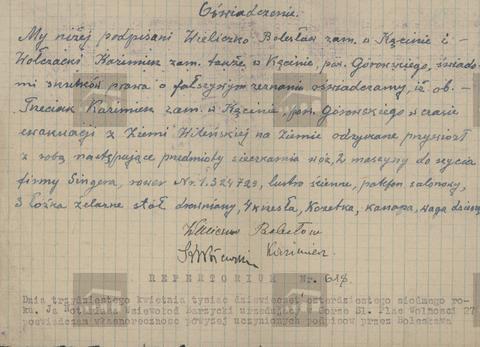 Oświadczenie.
My niżej podpisani Wieliczko Bolesław zam. w Kącinie i -
Wołczacki Kazimierz zam. także w Kącinie, pow. Górowskiego, świado-
mi skutków prawa o fałszywym zeznaniu oświadczamy, iż ob. -
Trzeciak Kazimierz zam. w Kącinie, pow. Górowskiego w czasie
ewakuacji z Ziemi Wileńskiej na Ziemie odzyskane przywiózł
z sobą następujące przedmioty sieczkarnia nóż, 2 maszyny do szycia
firmy Singera, rower Nr. 1.324729, lustro ścienne, patefon salonowy,
3 łóżka żelazne stół drewniany, 4 krzesła, Kozetka, kanapa, waga
Bolesław
Kazimierz
REPERTORIUM Nr. 618
Dnia trzydziestego kwietnia tysiąc dziewięćset czterdziestego siódmego ro-
ku. Ja Notariusz Wsiewołod Barzycki urzędujący w Górze Śl. Plac Wolności 27
poświadczam własnoręczność powyżej uczynionych podpisów przez Bolesława